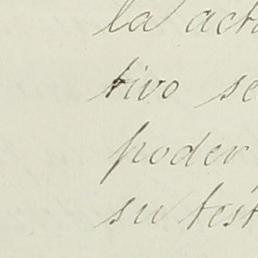 la act
tivo se
poder
su test